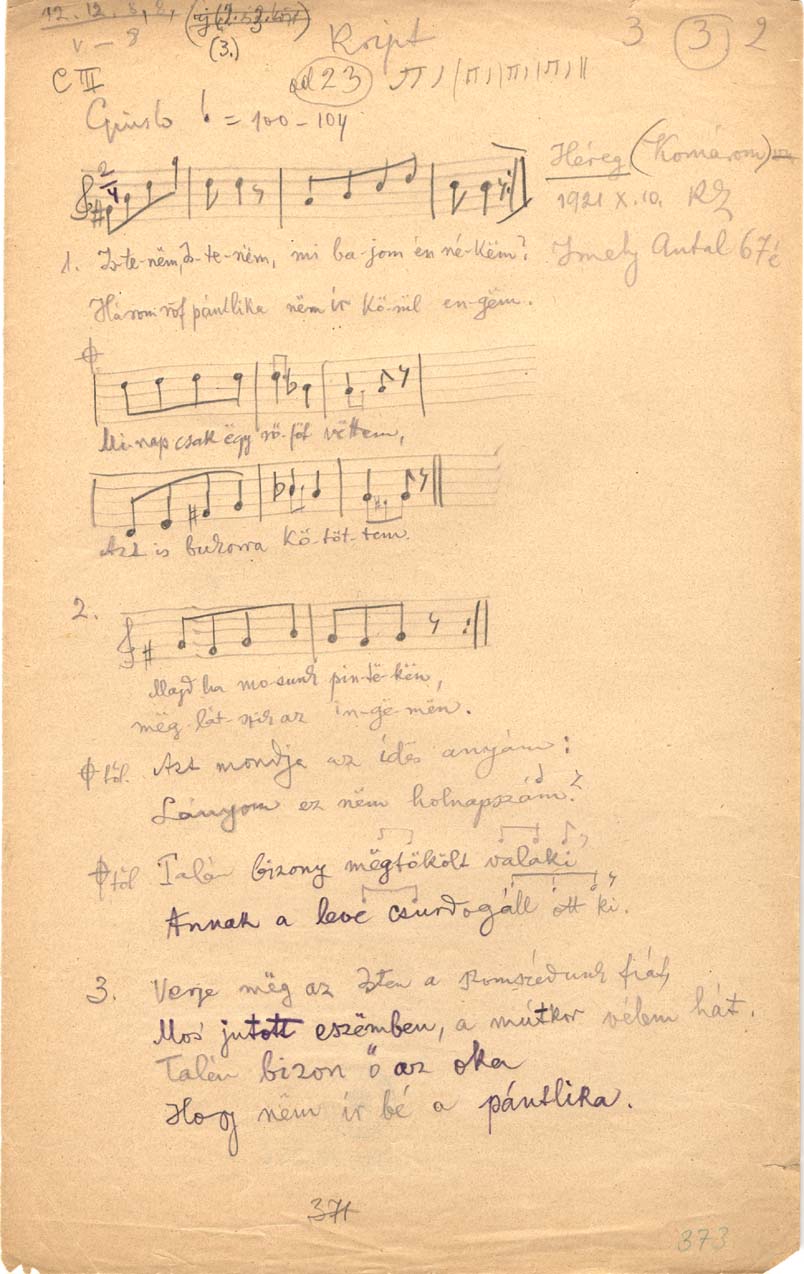 12. 12. 8, 8,
V – 8
(3.)
Kript
3 3 2
C III
ad 23
Giusto = 100 – 104
Héreg (Komárom)
1921 X. 10.
Imely Antal 67é
2/4
1. Is-te-něm, Is-te-něm, mi ba-jom én né-kěm?
Három rőf pántlika něm ír kö-rül en-gěm.
Mi-nap csak ěgy rö-föt věttem,
Azt is bukorra kö-töt-tem.
2.
Majd ha mo-sunk pin-tě-kěn,
měg-lát-szik az in-gě-měn.
től. Azt mondja az iděs anyám:
Lányom ez něm holnapszám?
től Talán bizony měgtökölt valaki
Annak a leve csurdogáll ott ki.
3. Verje měg az Isten a szomszédunk fiát,
Mos jutott eszěmben, a mútkor vélem hát.
Talán bizon ő az oka
Hogy něm ír bé a pántlika.
371
373